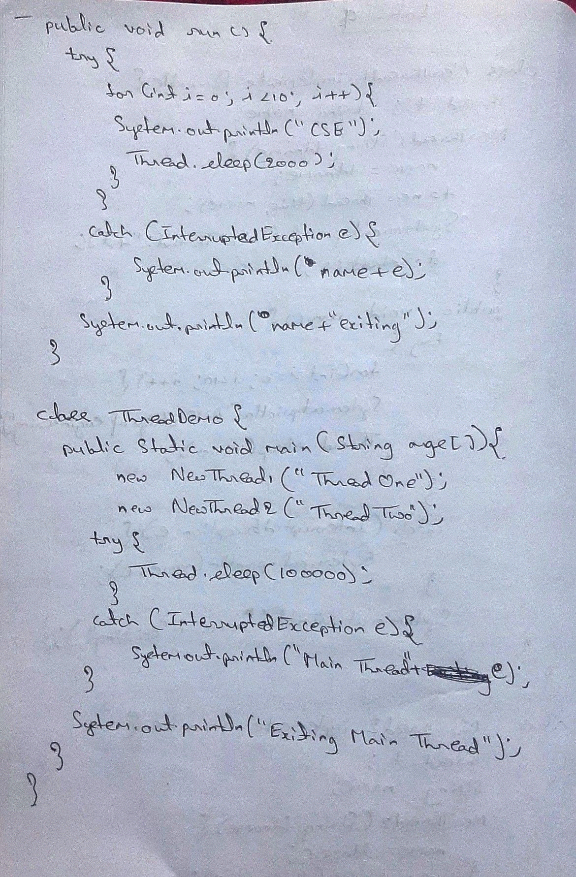 public void run () {
try {
for (int i=0; i<10; i++) {
System.out.println ("CSE");
Thread.sleep (2000);
}
}
catch (InterruptedException e) {
System.out.println (name+e);
}
System.out.println (name+"exiting");
}
class ThreadDemo {
public static void main (String args[]) {
new NewThread1 ("Thread One");
new NewThread2 ("Thread Two");
try {
Thread.sleep (100000);
}
catch (InterruptedException e) {
System.out.println ("Main Thread"+e);
}
System.out.println ("Exiting Main Thread");
}
}